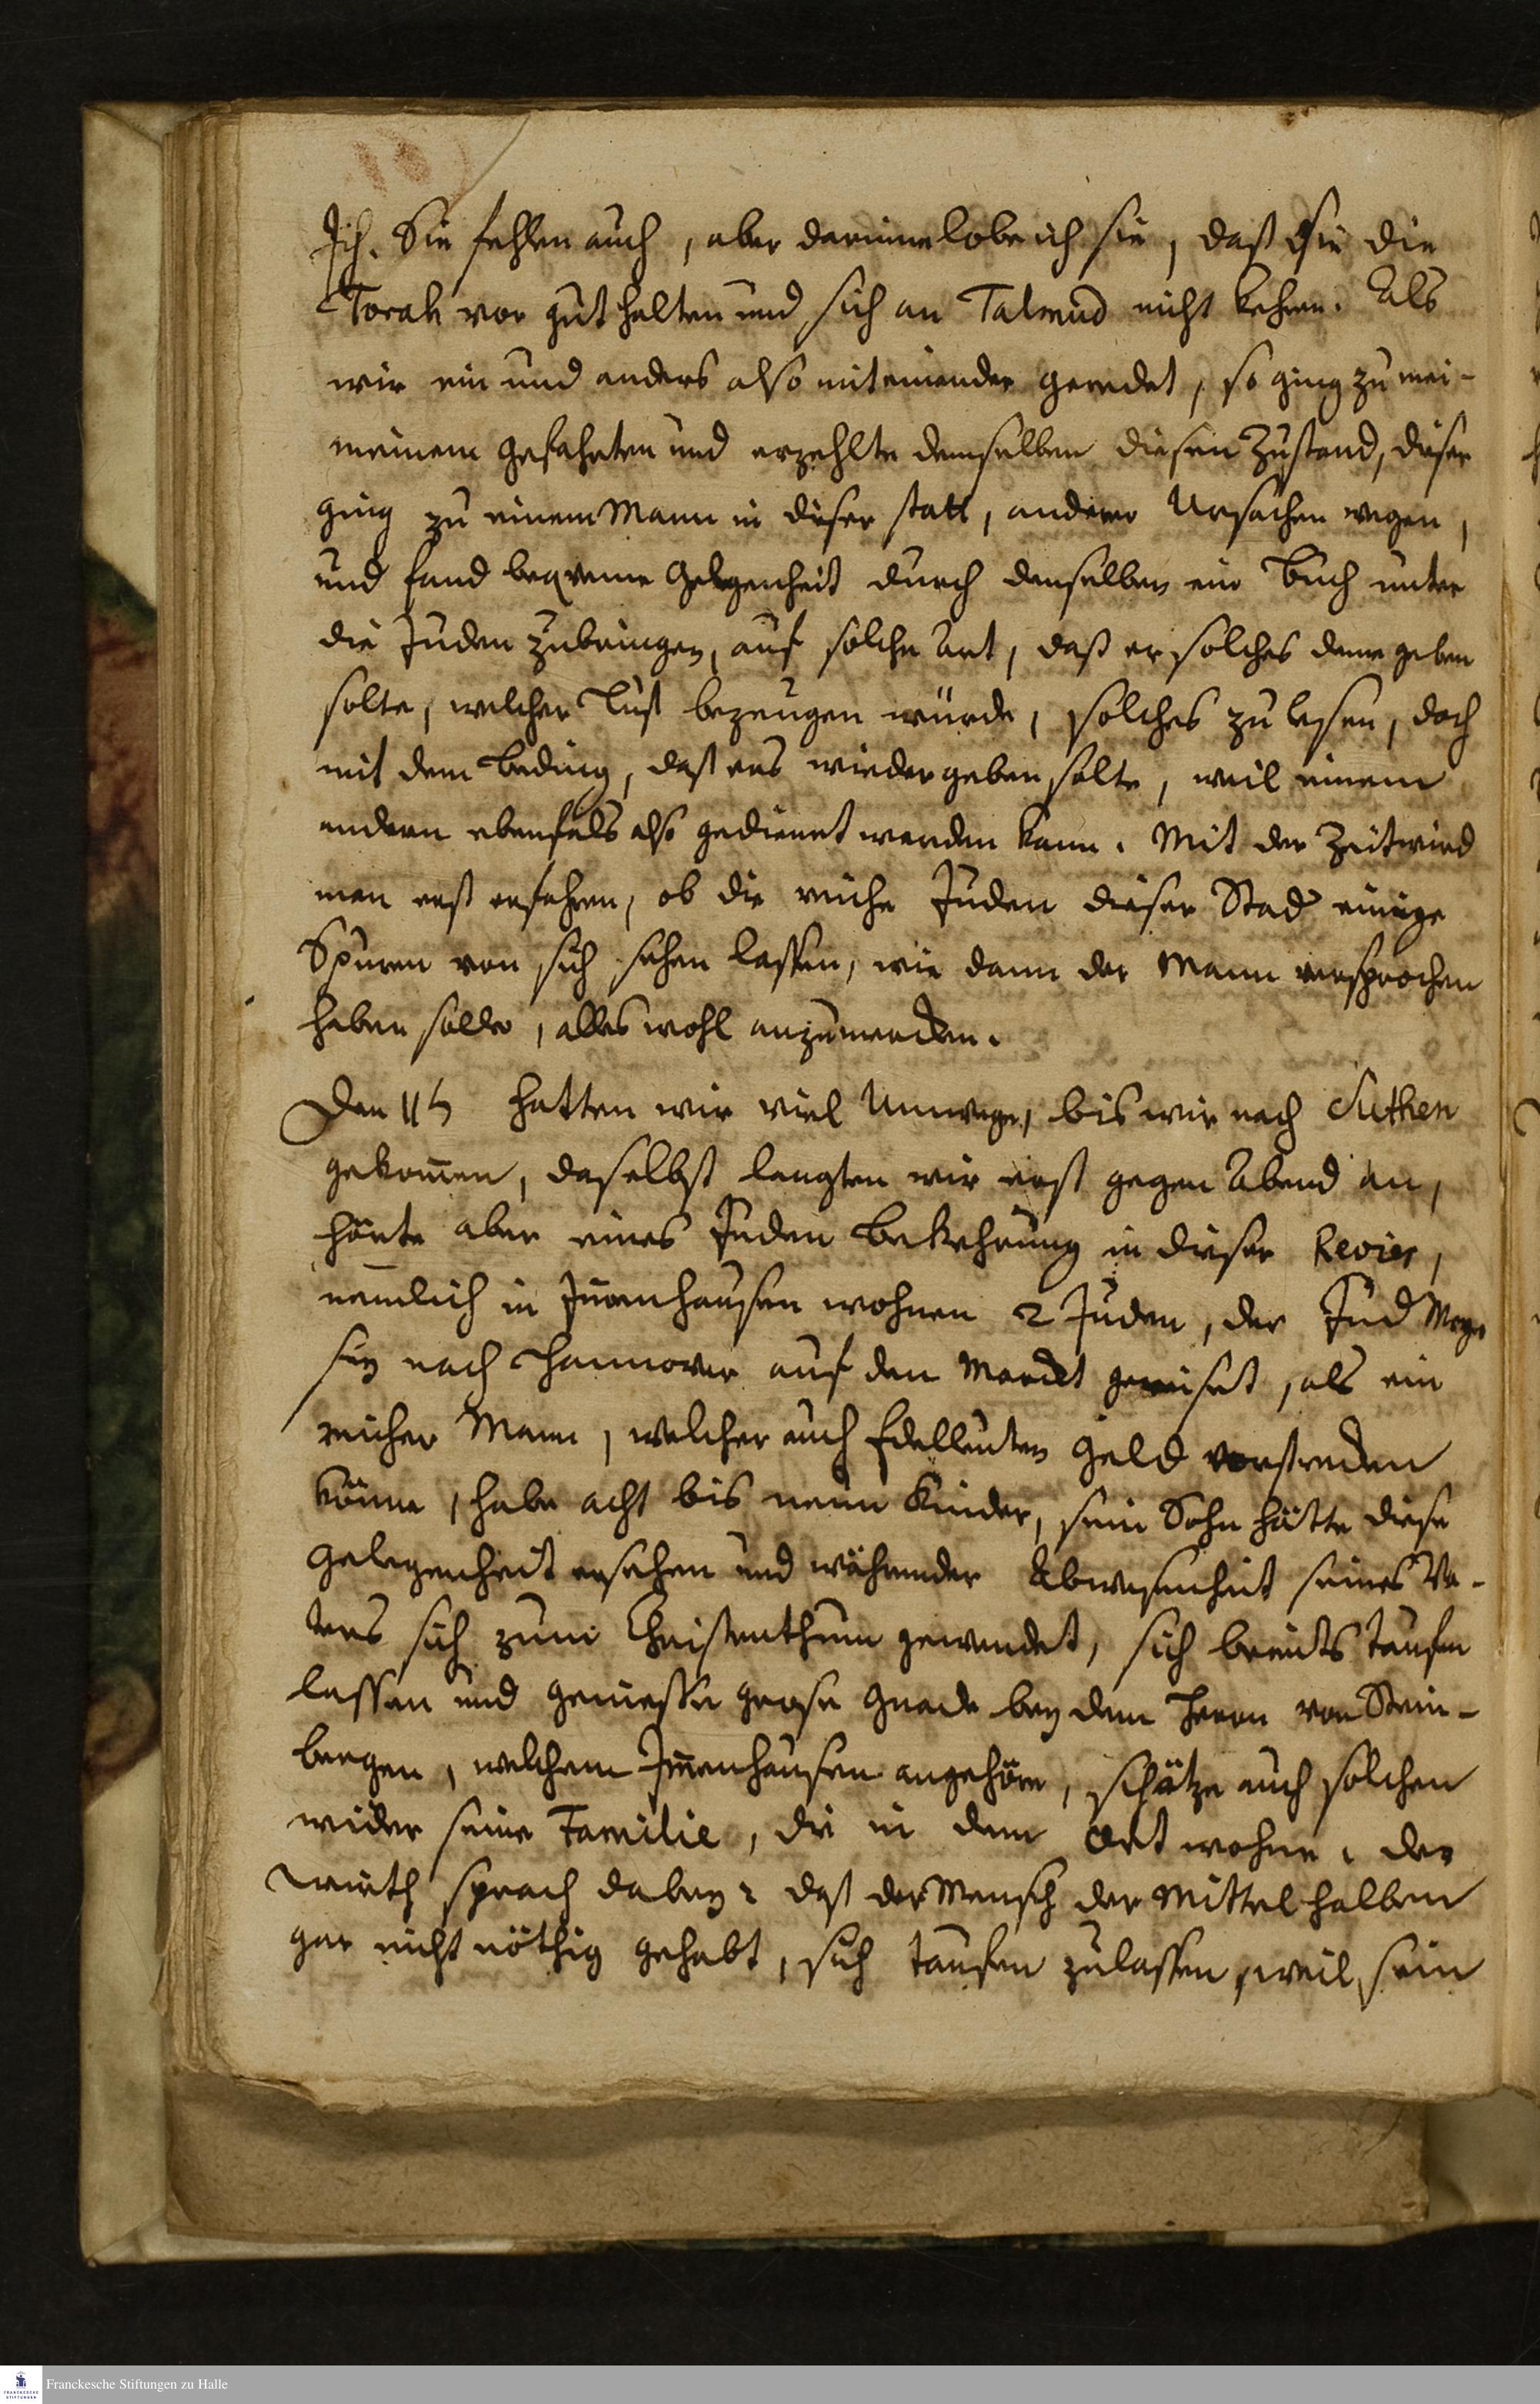 Ich. Sie fehlen auch, aber darinne lobe ich sie, daß sie die
Torah vor gut halten und sich an Talmud nicht kehren. Als
wir ein und anders also miteinander geredet, so ging zu mei-
meinem Gefehrten und erzehlte demselben diesen Zustand, dieser
ging zu einem Mann in dieser statt, anderer Ursachen wegen,
und fand beqveme Gelegenheit durch denselben ein Buch unter
die Juden zubringen, auf solche Art, daß er solches deme geben
solte, welcher Lust bezeugen würde, solches zu lesen, doch
mit dem Beding, daß ers wiedergeben solte, weil einem
andern ebenfals also gedienet werden kann. Mit der Zeit wird
man erst erfahren, ob die reiche Juden dieser Stad einige
Spuren von sich sehen lassen, wie dann der Mann versprochen
haben solle, alles wohl anzuwenden.
Den 11 hatten wir viel Umwege, bis wir nach Suthen
gekom̅en, daselbst langten wir erst gegen Abend an,
hörte aber eines Juden Bekehrung in dieser Revier,
nemlich in Im̅enhausen wohnen 2 Juden, der Jud
sey nach Hannover auf den Marckt gereiset, als ein
reicher Mann, welcher auch Edelleuten Geld vorstrecken
könne, habe acht bis neun Kinder, sein Sohn hätte diese
Gelegenheit ersehen und währender Abwesenheit seines Va-
ters sich zum Christenthum gewendet, sich bereits taufen
lassen und geniesse grose Gnade bey dem Herrn von Stein-
bergen, welchem Im̅enhausen angehöre, schütze auch solchen
wider seine Familie, die in dem Ort wohne. Der
Wirth sprach dabey: daß der Mensch der Mittel halben
gar nicht nöthig gehabt, sich taufen zulassen, weil sein
Franckesche Stiftungen zu Halle